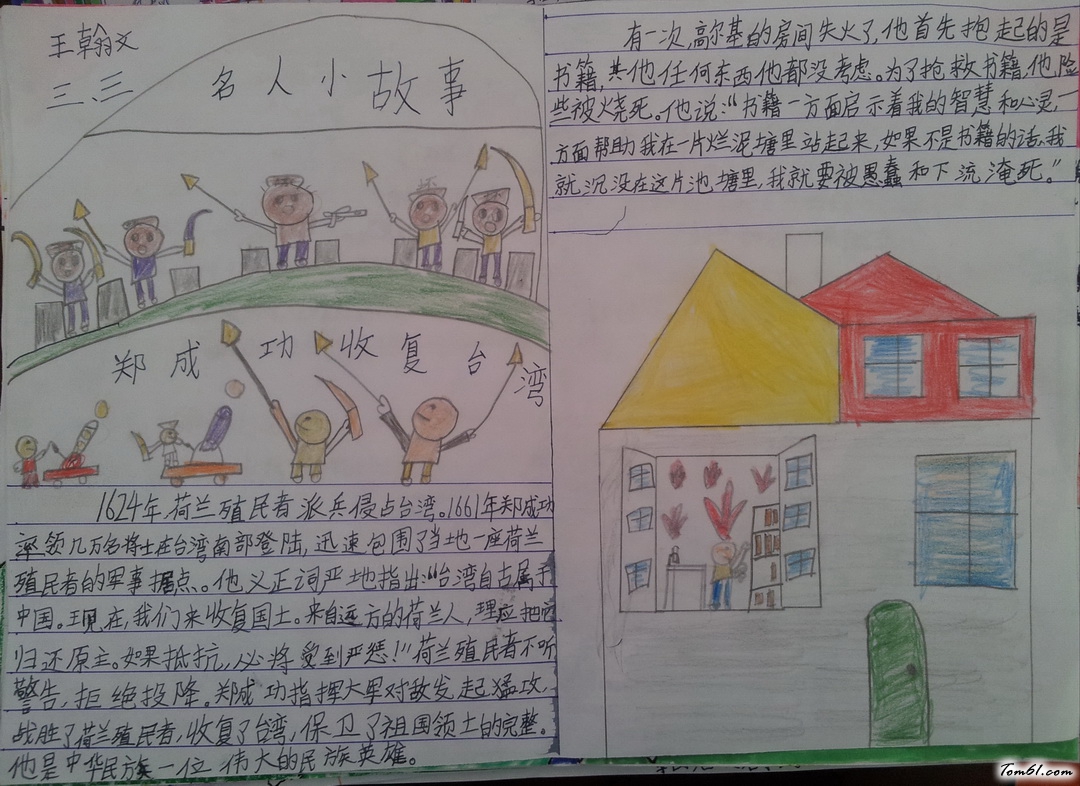 王翰文
三、三
名人小故事
郑成功收复台湾
1624年，荷兰殖民者派兵侵占台湾。1661年郑成功
率领几万名将士在台湾南部登陆，迅速包围了当地一座荷兰
殖民者的军事据点。他义正词严地指出：“台湾自古属于
中国。现在，我们来收复国土。来自远方的荷兰人，理应把它
归还原主。如果抵抗，必将受到严惩！”荷兰殖民者不听
警告，拒绝投降。郑成功指挥大军对敌发起猛攻，
战胜了荷兰殖民者，收复了台湾，保卫了祖国领土的完整。
他是中华民族一位伟大的民族英雄。
有一次，高尔基的房间失火了，他首先抱起的是
书籍，其他任何东西他都没考虑。为了抢救书籍，他险
些被烧死。他说：“书籍一方面启示着我的智慧和心灵，一
方面帮助我在一片烂泥塘里站起来，如果不是书籍的话，我
就沉没在这片池塘里，我就要被愚蠢和下流淹死。”
Tom61.com